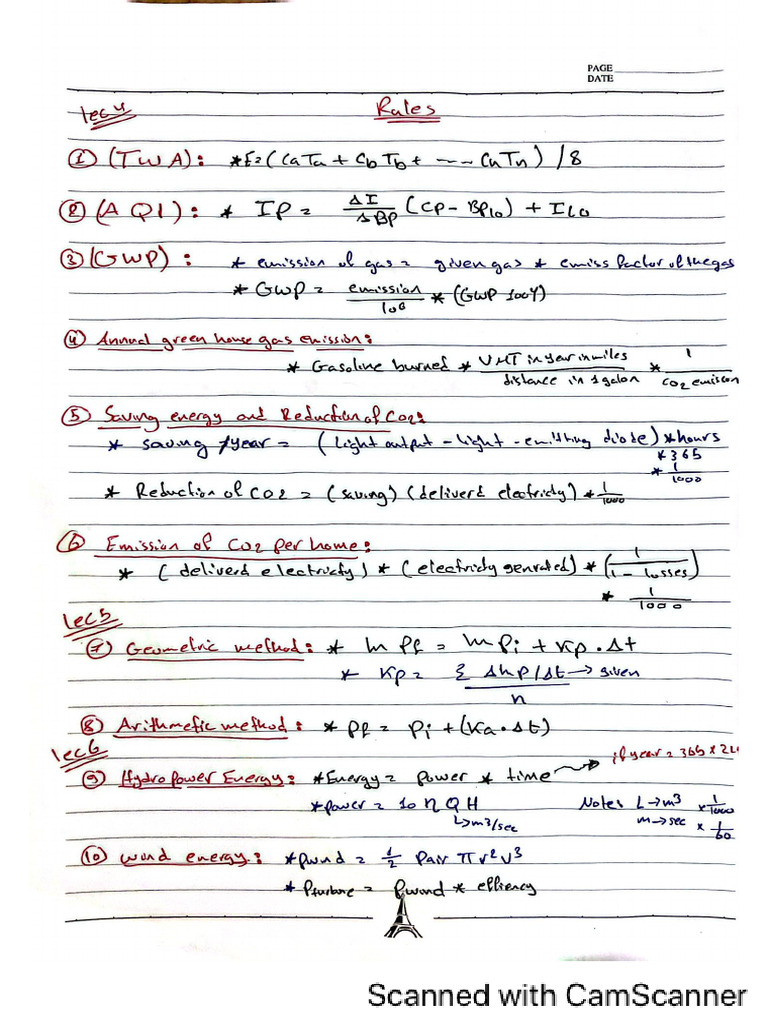 PAGE
DATE
lec 4
Rules
① (TWA): * E=(CaTa + CbTb + ---- CnTn) / 8
② (AQI): * IP = ΔI/ΔBP (CP - BPlo) + ILO
③ (GWP): * emission of gas = given gas * emiss factor of the gas
* GWP = emission/100 * (GWP 100Y)
④ Annual green house gas emission:
* Gasoline burned * VMT in year in miles/distance in 1 galon * 1/CO2 emission
⑤ Saving energy and Reduction of CO2:
* saving /year = (light output - light - emitting diode) * hours
* 365
* 1/1000
* Reduction of CO2 = (saving) (deliverd electricity) * 1/1000
⑥ Emission of CO2 per home:
* (deliverd electricity) * (electricity genrated) * (1/1 - losses)
* 1/1000
lec 5
⑦ Geometric method: * ln Pf = ln Pi + Kp . Δt
* Kp = Σ Δlnp/Δt → given/n
⑧ Arithmetic method: * Pf = Pi + (Ka . Δt)
lec 6
if year = 365 x 24
⑨ Hydropower Energy: * Energy = Power * time
* power = 10 η Q H
↳ m3/sec
Note: L → m³ x 1/1000
m → sec x 1/60
⑩ wind energy: * Pwind = 1/2 Pair π r² v³
* Pturbine = Pwind * effiency
Scanned with CamScanner